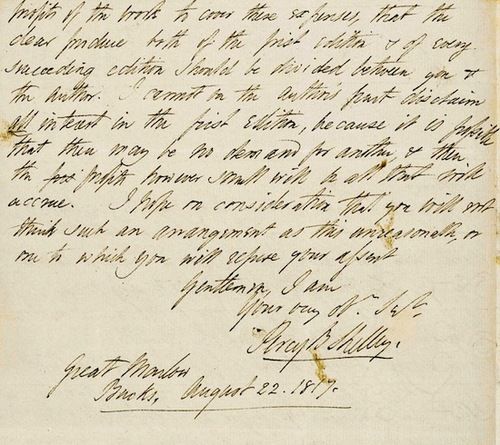 profits of the work to cover these expenses, that the
clear produce both of the first edition & of every
succeeding edition should be divided between you &
the author. I cannot on the author's part disclaim
all interest in the first Edition, because it is possible
that there may be no demand for another & then
the profits however small will be all that will
accrue. I hope on consideration that you will not
think such an arrangement as this unreasonable, or
one to which you will refuse your assent
Gentlemen, I am
Your very obt. Sert.
Percy B Shelley.
Great Marlow
Bucks, August 22. 1817.